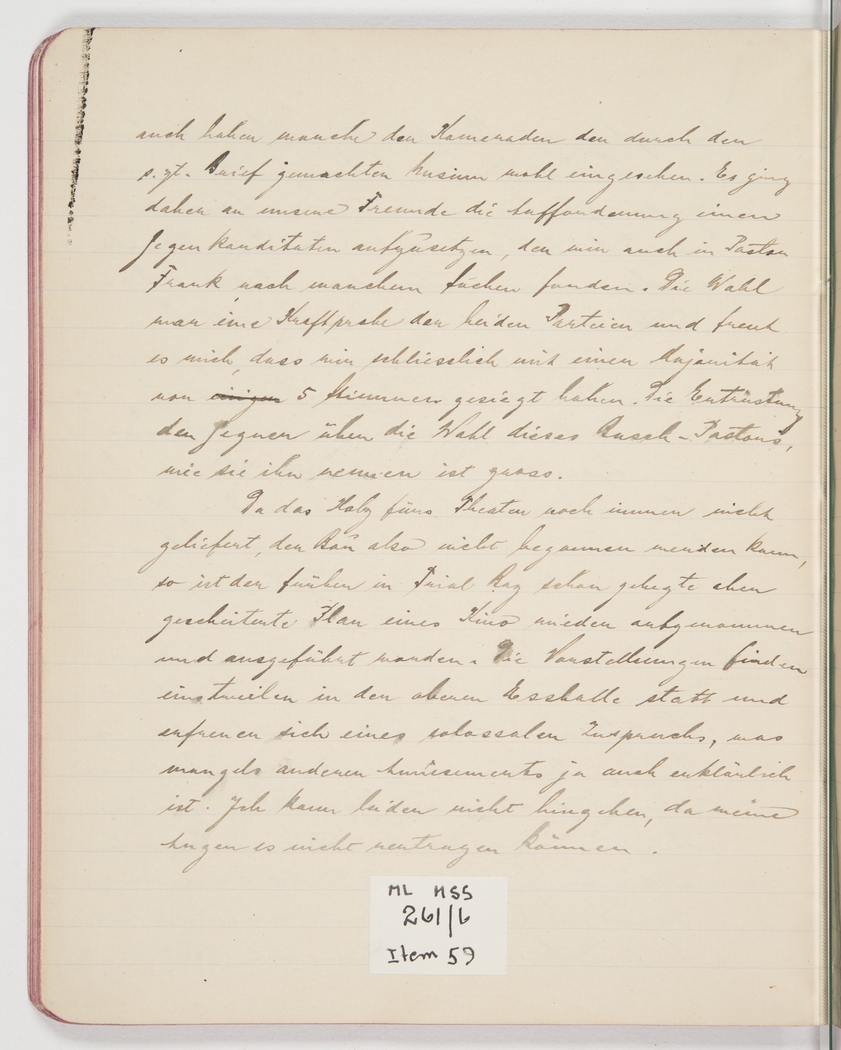 auch haben manche der Kameraden den durch den
s. Zt. Brief gemachten Unsinn wohl eingesehen. Es ging
daher an unsere Freunde die Aufforderung einen
Gegenkanditaten aufzusetzen, den wir auch in Pastor
Frank nach manchem Suchen fanden. Die Wahl
war eine Kraftprobe der beiden Parteien und freut
es mich, dass wir schliesslich mit einer Majorität
von einigen 5 Stimmen gesiegt haben. Die Entrüstung
der Gegner über die Wahl dieses Busch-Pastors,
wie sie ihn nennen ist gross.
Da das Holz fürs Theater noch immer nicht
geliefert, der Bau also nicht begonnen werden kann,
so ist der früher in Trial Bay schon gehegte aber
gescheiterte Plan eines Kino wieder aufgenommen
und ausgeführt worden. Die Vorstellungen finden
einstweilen in der oberen Esshalle statt und
erfreuen sich eines colossalen Zuspruchs, was
mangels anderer Amüsements ja auch erklärlich
ist. Ich kann leider nicht hingehen, da meine
Augen es nicht vertragen können.
ML MSS
261/6
Item 59